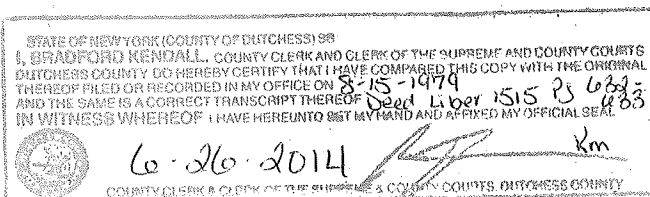 STATE OF NEW YORK (COUNTY OF DUTCHESS) SS
I, BRADFORD KENDALL, COUNTY CLERK AND CLERK OF THE SUPREME AND COUNTY COURTS
DUTCHESS COUNTY DO HEREBY CERTIFY THAT I HAVE COMPARED THIS COPY WITH THE ORIGINAL
THEREOF FILED OR RECORDED IN MY OFFICE ON 8-15-1979
AND THE SAME IS A CORRECT TRANSCRIPT THEREOF Deed Liber 1515 Pg 632-
633
IN WITNESS WHEREOF I HAVE HEREUNTO SET MY HAND AND AFFIXED MY OFFICIAL SEAL
6-26-2014 Km
COUNTY CLERK & CLERK OF THE SUPREME & COUNTY COURTS, DUTCHESS COUNTY